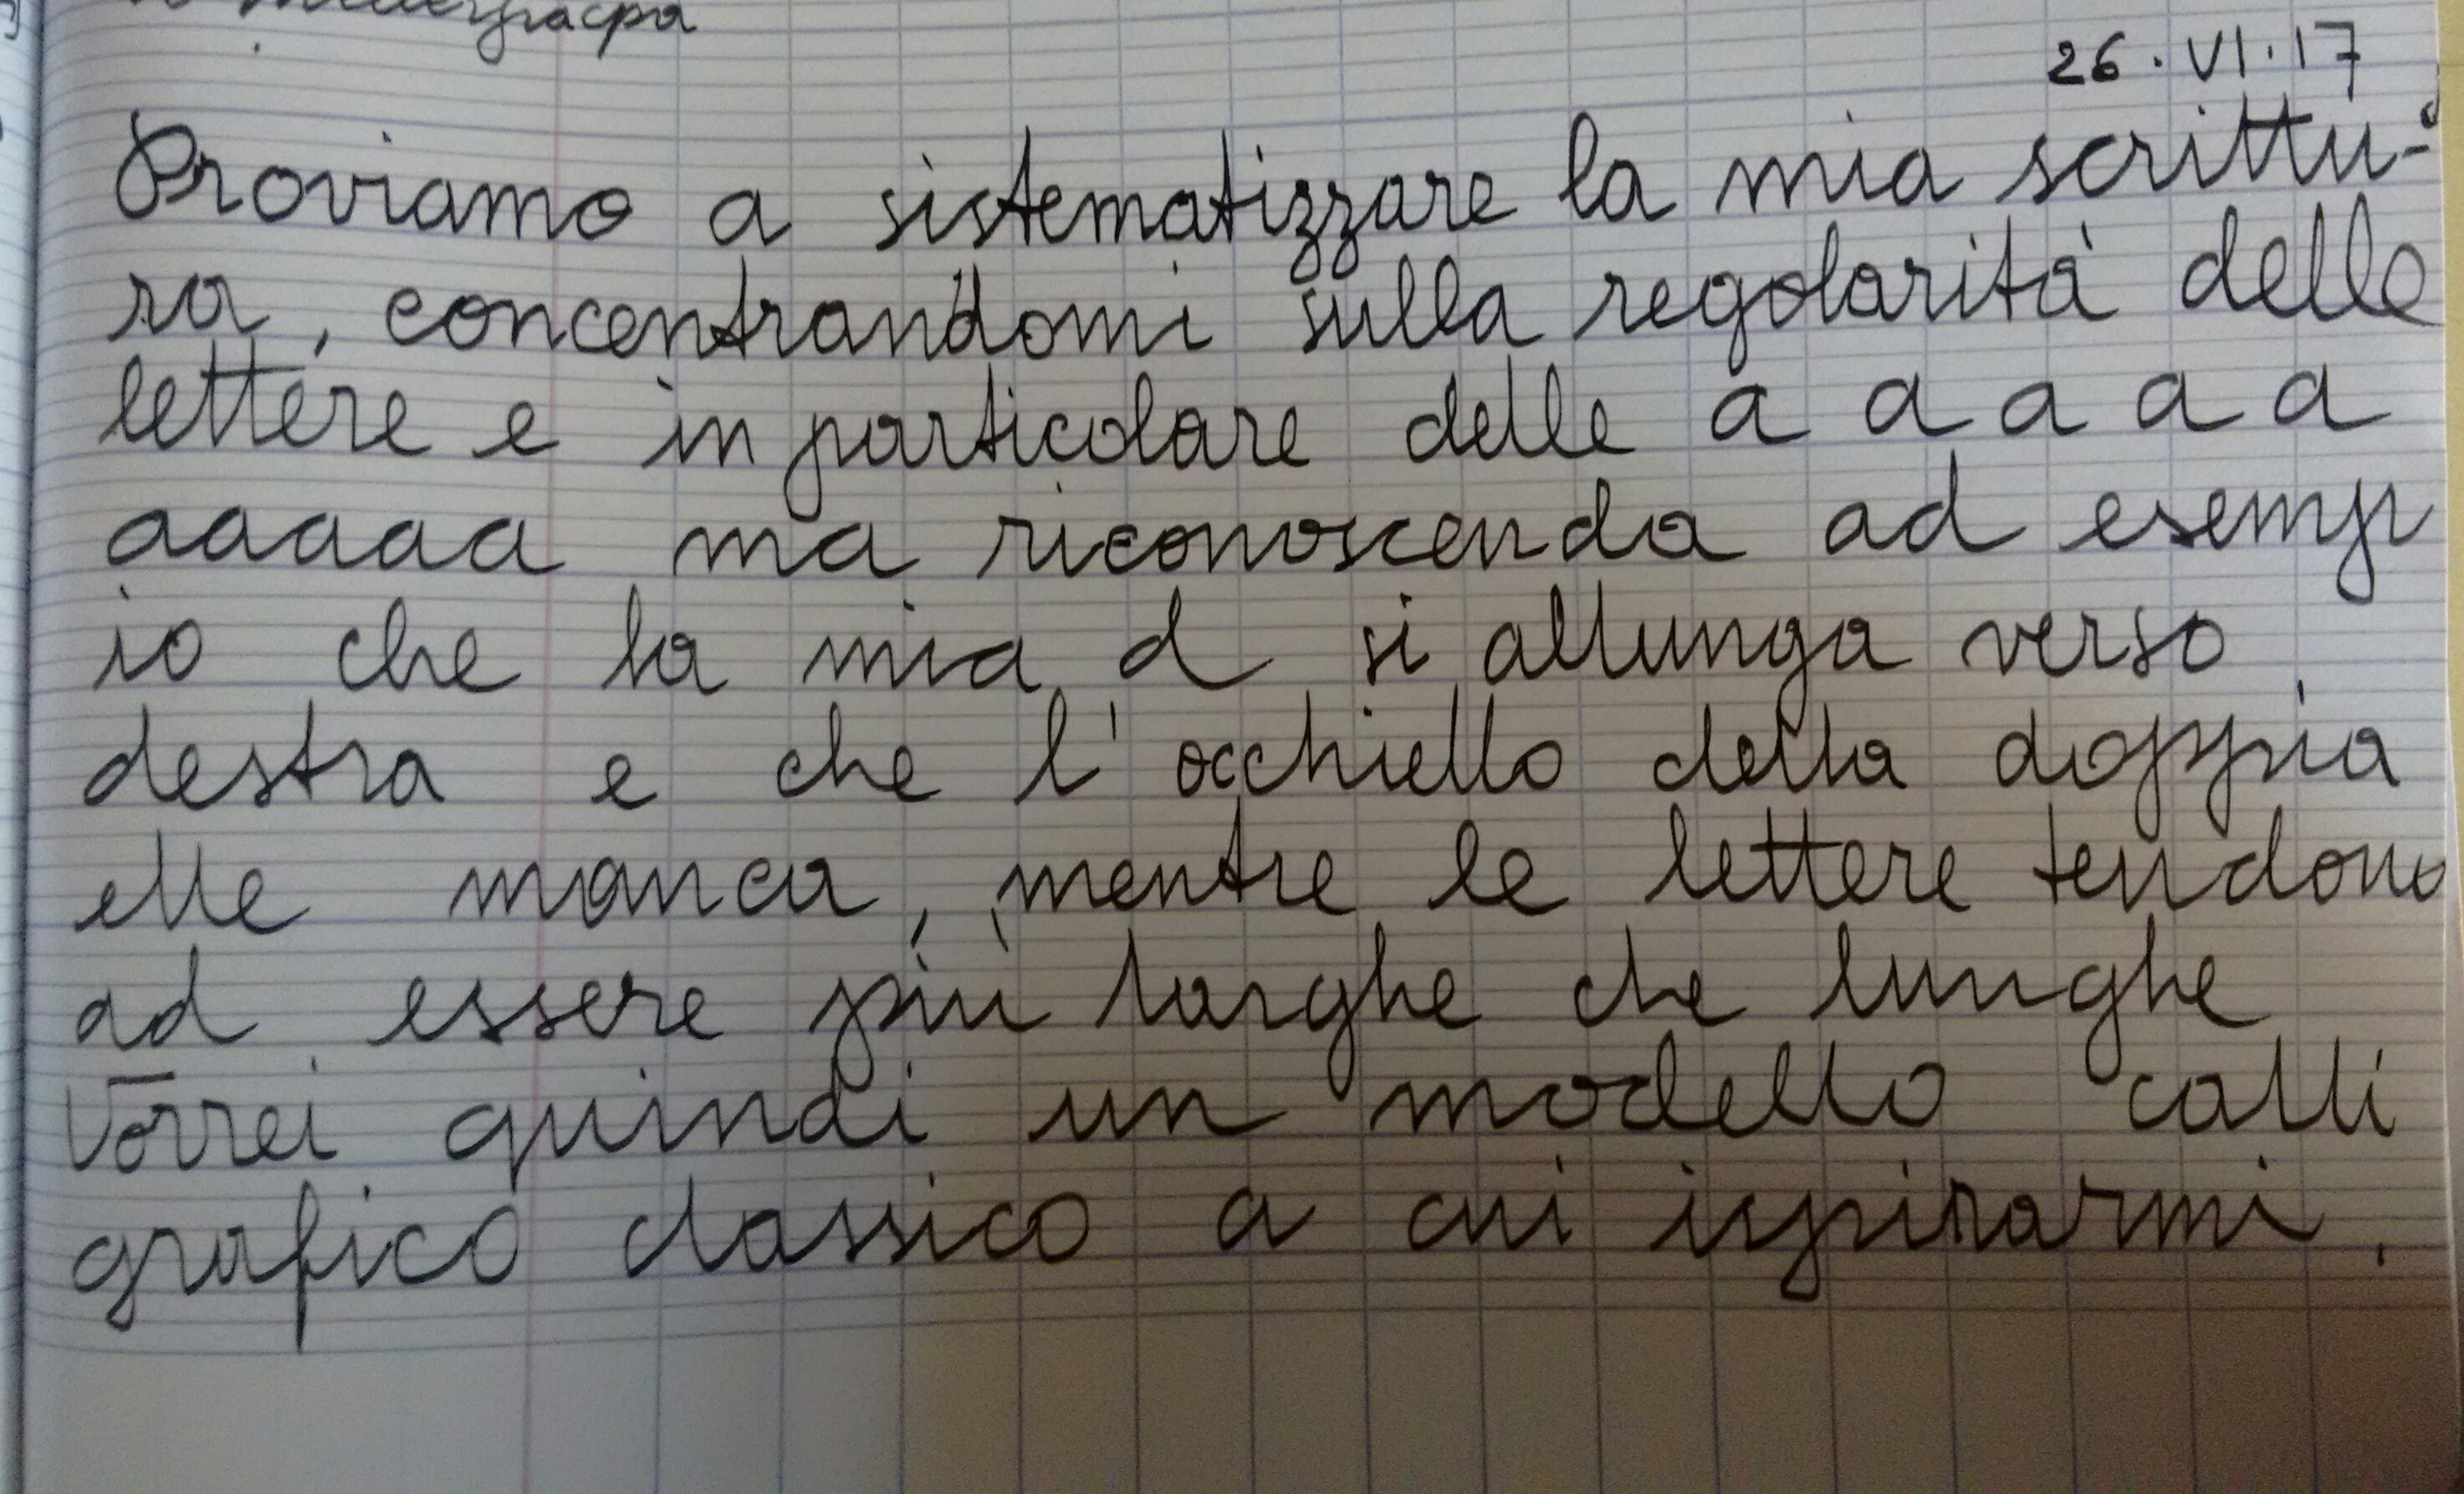 26.VI.17
Proviamo a sistematizzare la mia scrittu-
ra, concentrandomi sulla regolarità delle
lettere e in particolare delle a a a a a
aaaaa ma riconoscenda ad esemp
io che la mia d si allunga verso
destra e che l'occhiello della doppia
elle manca, mentre le lettere tendono
ad essere più larghe che lunghe
Vorrei quindi un modello calli
grafico classico a cui ispirarmi.